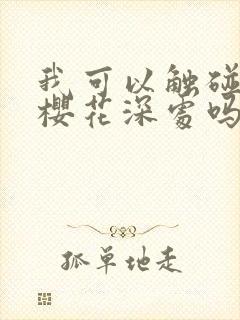 我可以触碰
樱花深处吗
孤单地走